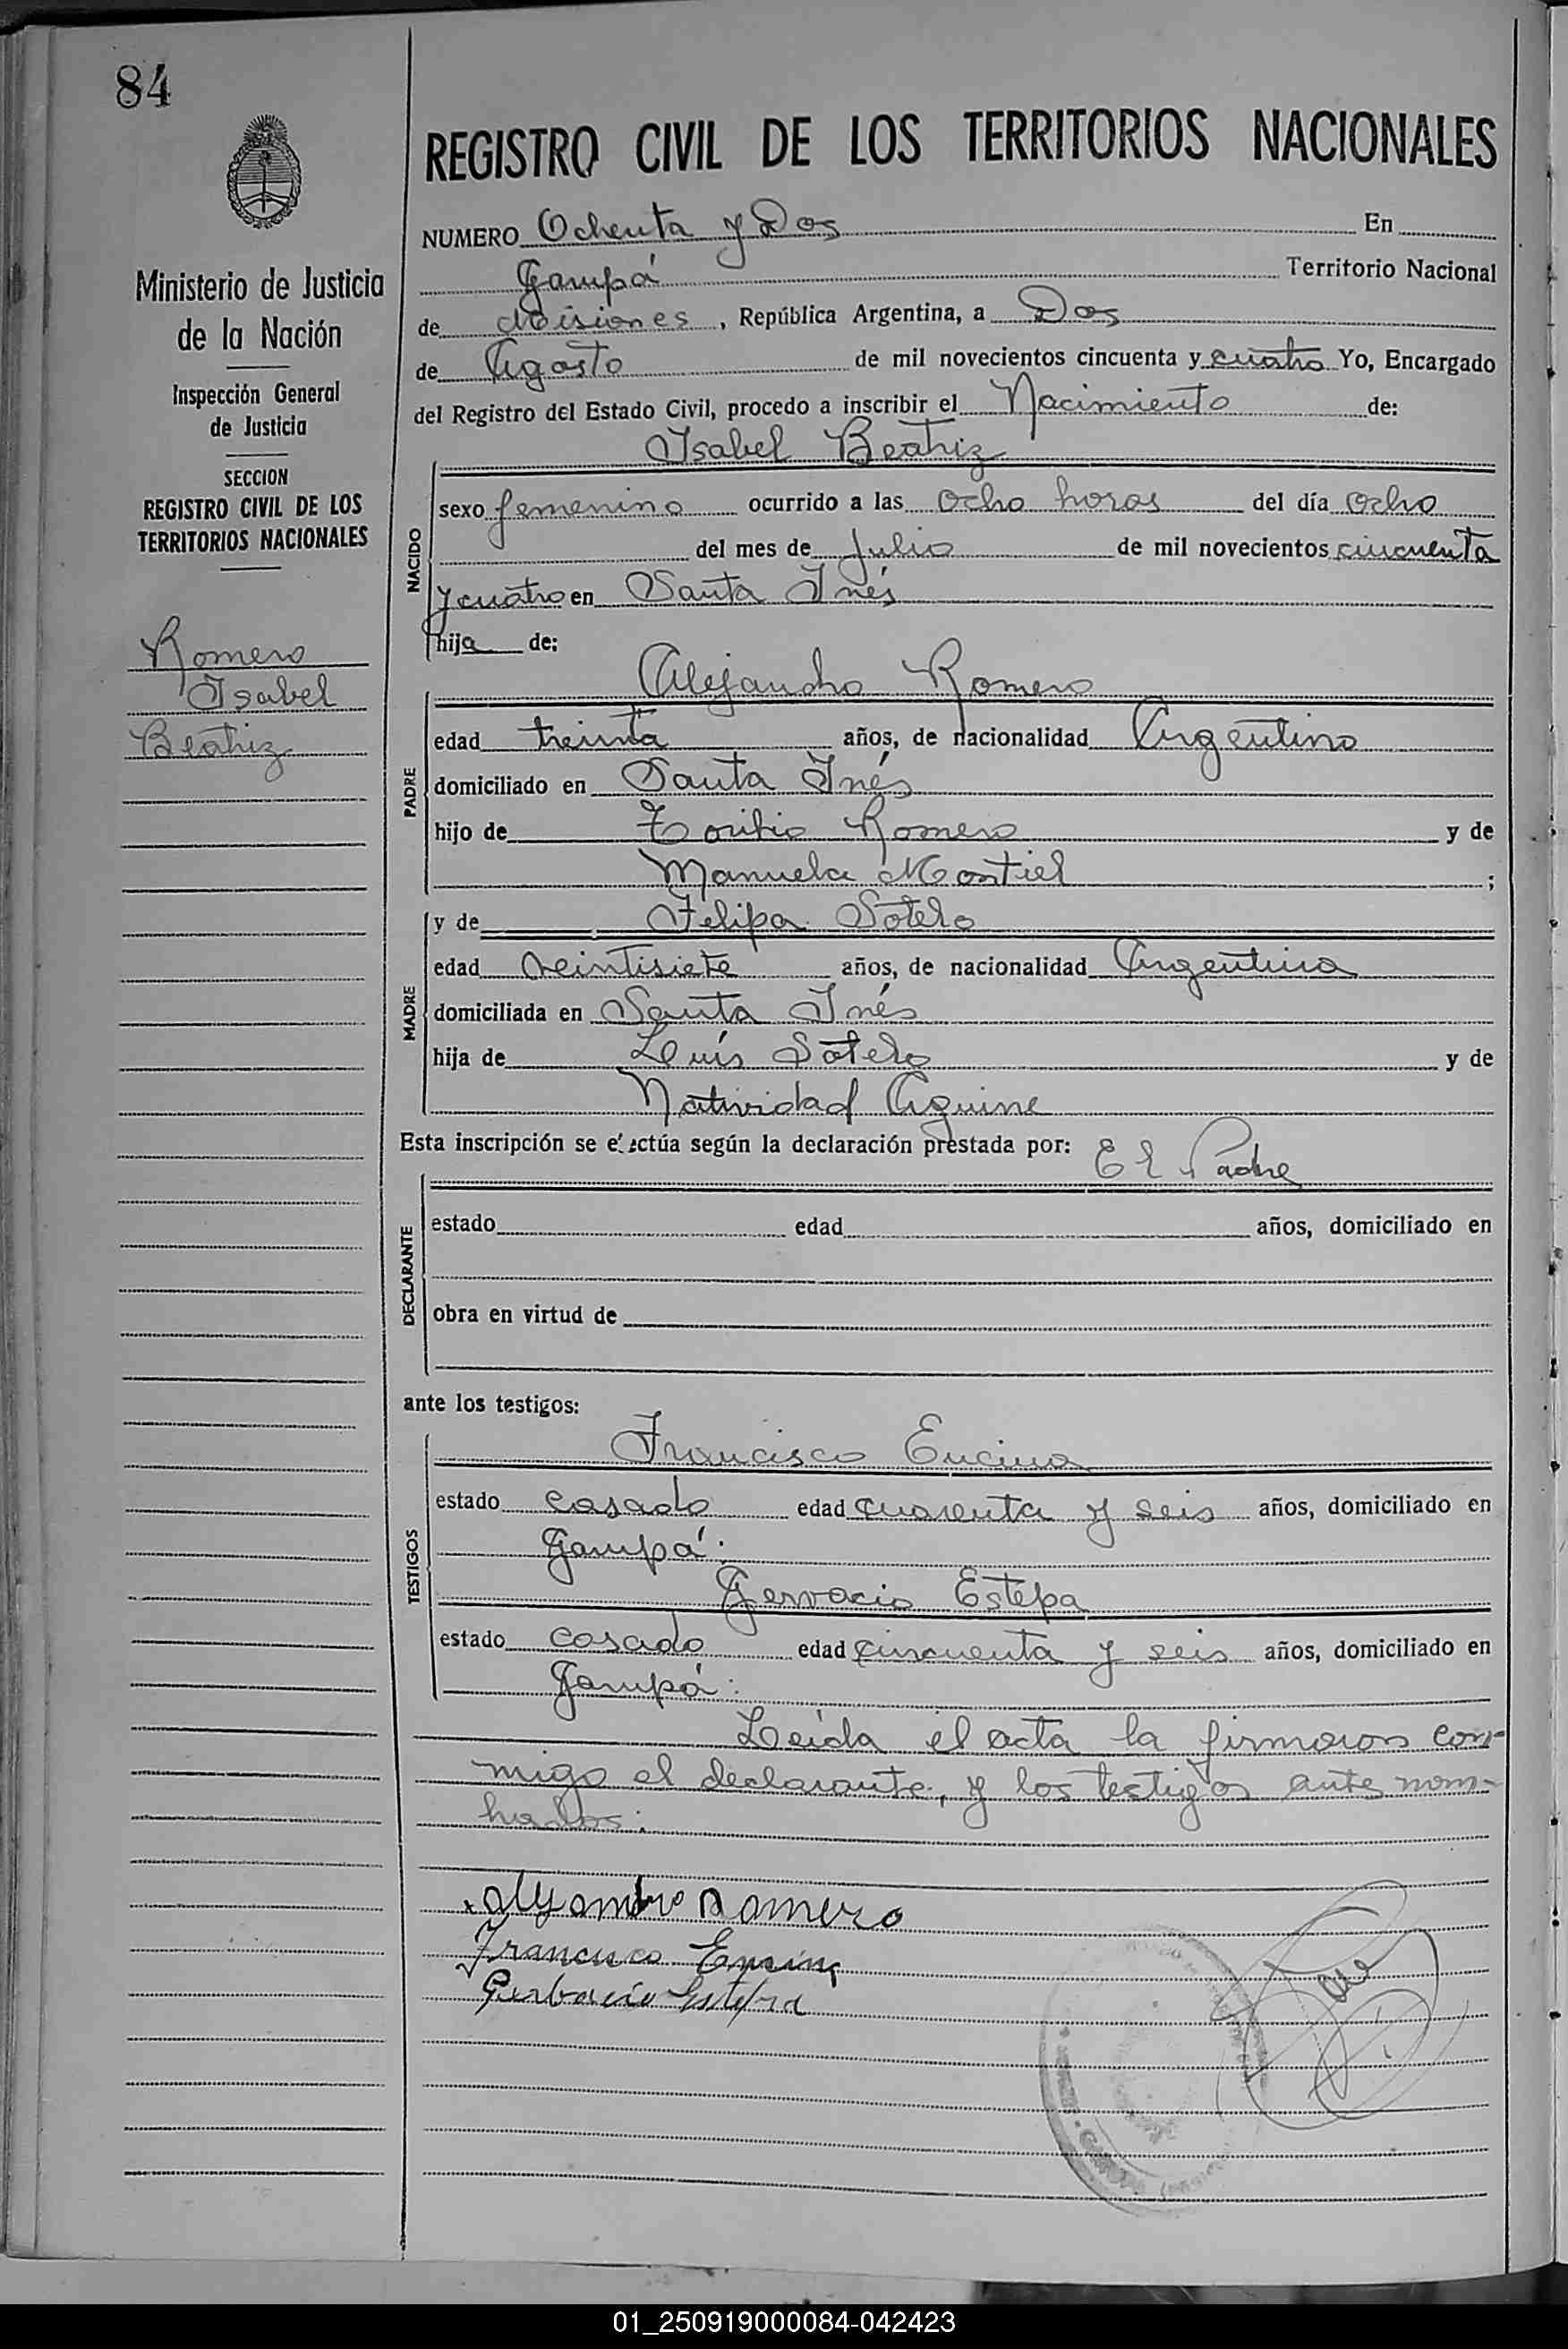 84
REGISTRO CIVIL DE LOS TERRITORIOS NACIONALES
Ministerio de Justicia
de la Nación
Inspección General
de Justicia
SECCION
REGISTRO CIVIL DE LOS
TERRITORIOS NACIONALES
Romero
Isabel
Beatriz
NUMERO Ochenta y Dos En
Garupá Territorio Nacional
de Misiones, República Argentina, a Dos
de Agosto de mil novecientos cincuenta y cuatro Yo, Encargado
del Registro del Estado Civil, procedo a inscribir el Nacimiento de:
NACIDO
Isabel Beatriz
sexo femenino ocurrido a las Ocho horas del día Ocho
del mes de Julio de mil novecientos cincuenta
y cuatro en Santa Inés
hija de:
PADRE
Alejandro Romero
edad treinta años, de nacionalidad Argentino
domiciliado en Santa Inés
hijo de Toribio Romero y de
Manuela Montiel ;
MADRE
y de Felipa Sotelo
edad Veintisiete años, de nacionalidad Argentina
domiciliada en Santa Inés
hija de Luís Sotelo y de
Natividad Aguirre
Esta inscripción se efectúa según la declaración prestada por: El Padre
DECLARANTE
estado edad años, domiciliado en
obra en virtud de
ante los testigos:
TESTIGOS
Francisco Encina
estado casado edad cuarenta y seis años, domiciliado en
Garupá.
Gervacio Estepa
estado casado edad cincuenta y seis años, domiciliado en
Garupá.
Leída el acta la firmaron con-
migo el declarante, y los testigos ante nom-
brados.
Alejandro Romero
Francisco Encina
Gerbacio Estepa
01_250919000084-042423